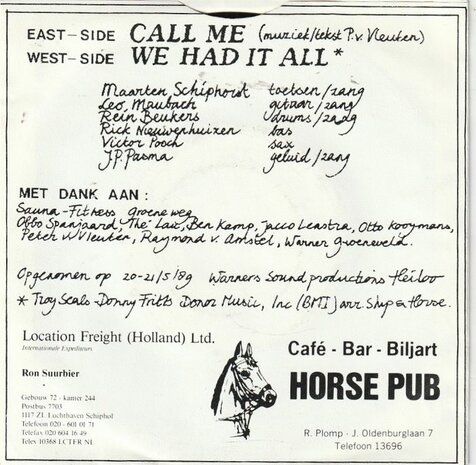 EAST-SIDE CALL ME (muziek/tekst P.v. Vleuten)
WEST-SIDE WE HAD IT ALL*
Maarten Schiphorst toetsen/zang
Leo Maubach gitaar/zang
Rein Beukers drums/zang
Rick Nieuwenhuizen bas
Victor Pooch sax
J.P. Pasma geluid/zang
MET DANK AAN:
Sauna-Fitness Groeneweg,
Otto Spanjaard, The Law, Ben Kamp, Jacco Leastra, Otto Kooymans,
Peter v Vleuten, Raymond v. Amstel, Warner Groeneveld.
Opgenomen op 20-21/5/89 Warners Sound productions Heiloo
* Troy Seals-Donny Fritts Donor Music, Inc (BMI) arr. Ship en Horse.
Location Freight (Holland) Ltd.
Internationale Expediteurs
Ron Suurbier
Gebouw 72 - kamer 244
Postbus 7703
1117 ZL Luchthaven Schiphol
Telefoon 020 - 601 01 71
Telefax 020 604 16 49
Telex 10368 LCTER NL
Café - Bar - Biljart
HORSE PUB
R. Plomp - J. Oldenburglaan 7
Telefoon 13696